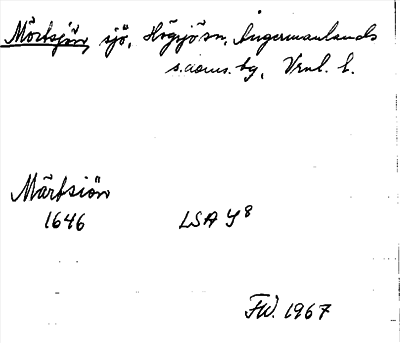 Mörtsjön, sjö, Högsjö sn, Ångermanlands
s. doms. tg, Vrnl. l.
Märtsiön
1646 LSA Y8
FW. 1967